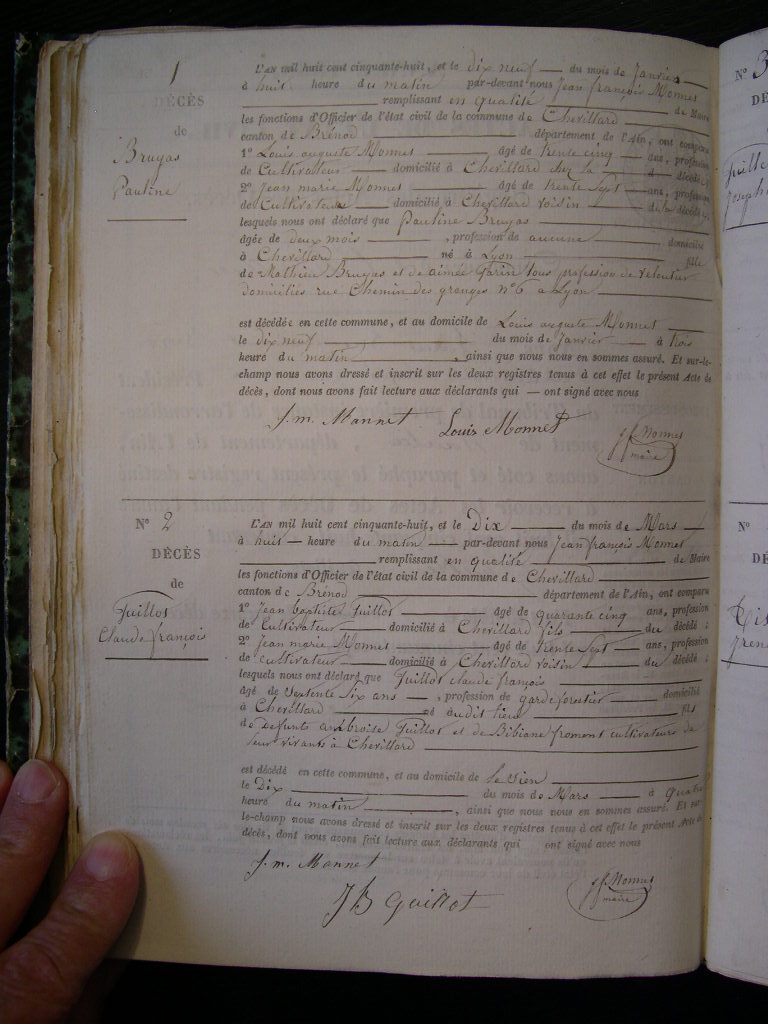 1
DÉCÈS
de
Bruyas
Pauline
L'AN mil huit cent cinquante-huit, et le dix neuf du mois de Janvier
à huit heure du matin par-devant nous Jean françois Monnet
remplissant en qualité de Maire
les fonctions d'Officier de l'état civil de la commune de Chevillard
canton de Brénod département de l'Ain, ont comparu
1° Louis auguste Monnet âgé de trente cinq ans, profession
de Cultivateur domicilié à Chevillard chez la décédée
2° Jean marie Monnet âgé de trente Sept ans, profession
de Cultivateur domicilié à Chevillard voisin de la décédée
lesquels nous ont déclaré que Pauline Bruyas
âgée de deux mois , profession de aucune domiciliée
à Chevillard né à Lyon fille
de Mathieu Bruyas et de aimée garin tous profession de
domiciliés rue Chemin des granges n° 6 a Lyon
est décédée en cette commune, et au domicile de Louis auguste Monnet
le dix neuf du mois de Janvier à trois
heure du matin , ainsi que nous nous en sommes assuré. Et sur-le-
champ nous avons dressé et inscrit sur les deux registres tenus à cet effet le présent Acte de
décès, dont nous avons fait lecture aux déclarants qui ont signé avec nous
J. m. Monnet Louis Monnet Jf Monnet
maire
N° 2
DÉCÈS
de
Guillot
Claude françois
L'AN mil huit cent cinquante-huit, et le Dix du mois de Mars
à huit heure du matin par-devant nous Jean françois Monnet
remplissant en qualité de Maire
les fonctions d'Officier de l'état civil de la commune de Chevillard
canton de Brénod département de l'Ain, ont comparu
1° Jean baptiste Guillot âgé de quarante cinq ans, profession
de Cultivateur domicilié à Chevillard fils du décédé ;
2° Jean marie Monnet âgé de trente Sept ans, profession
de cultivateur domicilié à Chevillard voisin du décédé ;
lesquels nous ont déclaré que Guillot claude françois
âgé de Septente Six ans , profession de garde forestier domicilié
à Chevillard né audit lieu fils
de Defunts ambroise Guillot et de Bibiane fromont cultivateurs de
leur vivants à Chevillard
est décédé en cette commune, et au domicile de le sien
le Dix du mois de Mars à quatre
heure du matin , ainsi que nous nous en sommes assuré. Et sur
le-champ nous avons dressé et inscrit sur les deux registres tenus à cet effet le présent Acte de
décès, dont nous avons fait lecture aux déclarants qui ont signé avec nous
J. m. Monnet
JB Guillot Jf Monnet
maire
N° 3
DÉ
Guille
Joseph
N°
DÉ